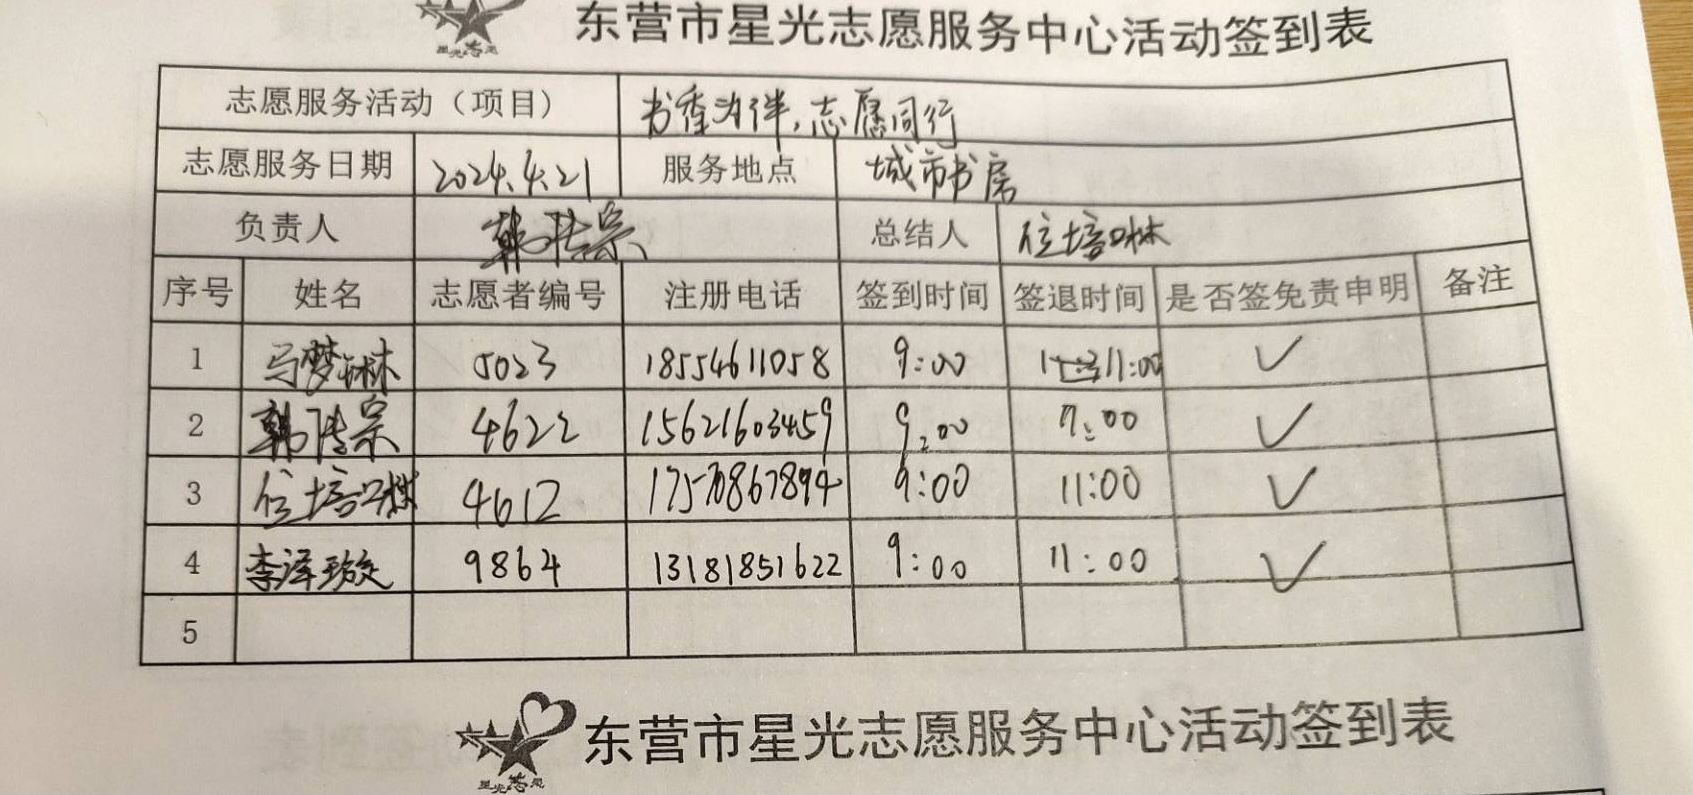 东营市星光志愿服务中心活动签到表
志愿服务活动（项目） 书香为伴，志愿同行
志愿服务日期 2024.4.21 服务地点 城市书房
负责人 韩传宗 总结人 位培琳
序号 姓名 志愿者编号 注册电话 签到时间 签退时间 是否签免责申明 备注
1 马梦琳 5023 18554611058 9:00 11:00 ✓
2 韩传宗 4622 15621603459 9:00 11:00 ✓
3 位培琳 4612 17570867894 9:00 11:00 ✓
4 李泽璇 9864 13181851622 9:00 11:00 ✓
5
东营市星光志愿服务中心活动签到表